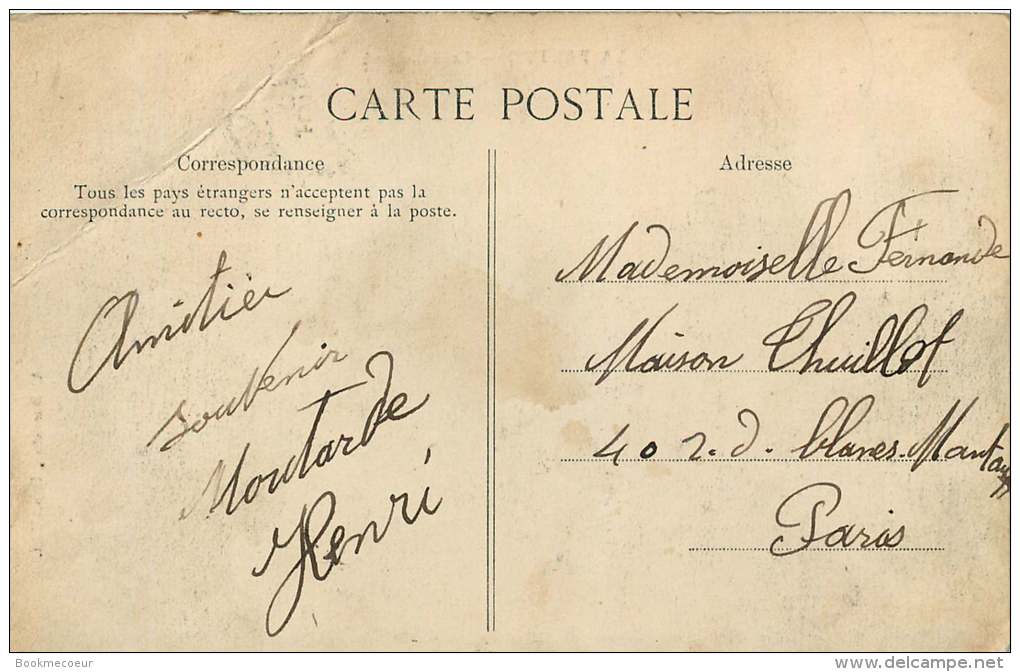 CARTE POSTALE
Correspondance
Tous les pays étrangers n'acceptent pas la
correspondance au recto, se renseigner à la poste.
Amitiér
souvenir
Moutarde
Henri
Adresse
Mademoiselle Fernande
Maison Thuillot
40 r. d. blancs Mantaux
Paris
Bookmecoeur
www.delcampe.net